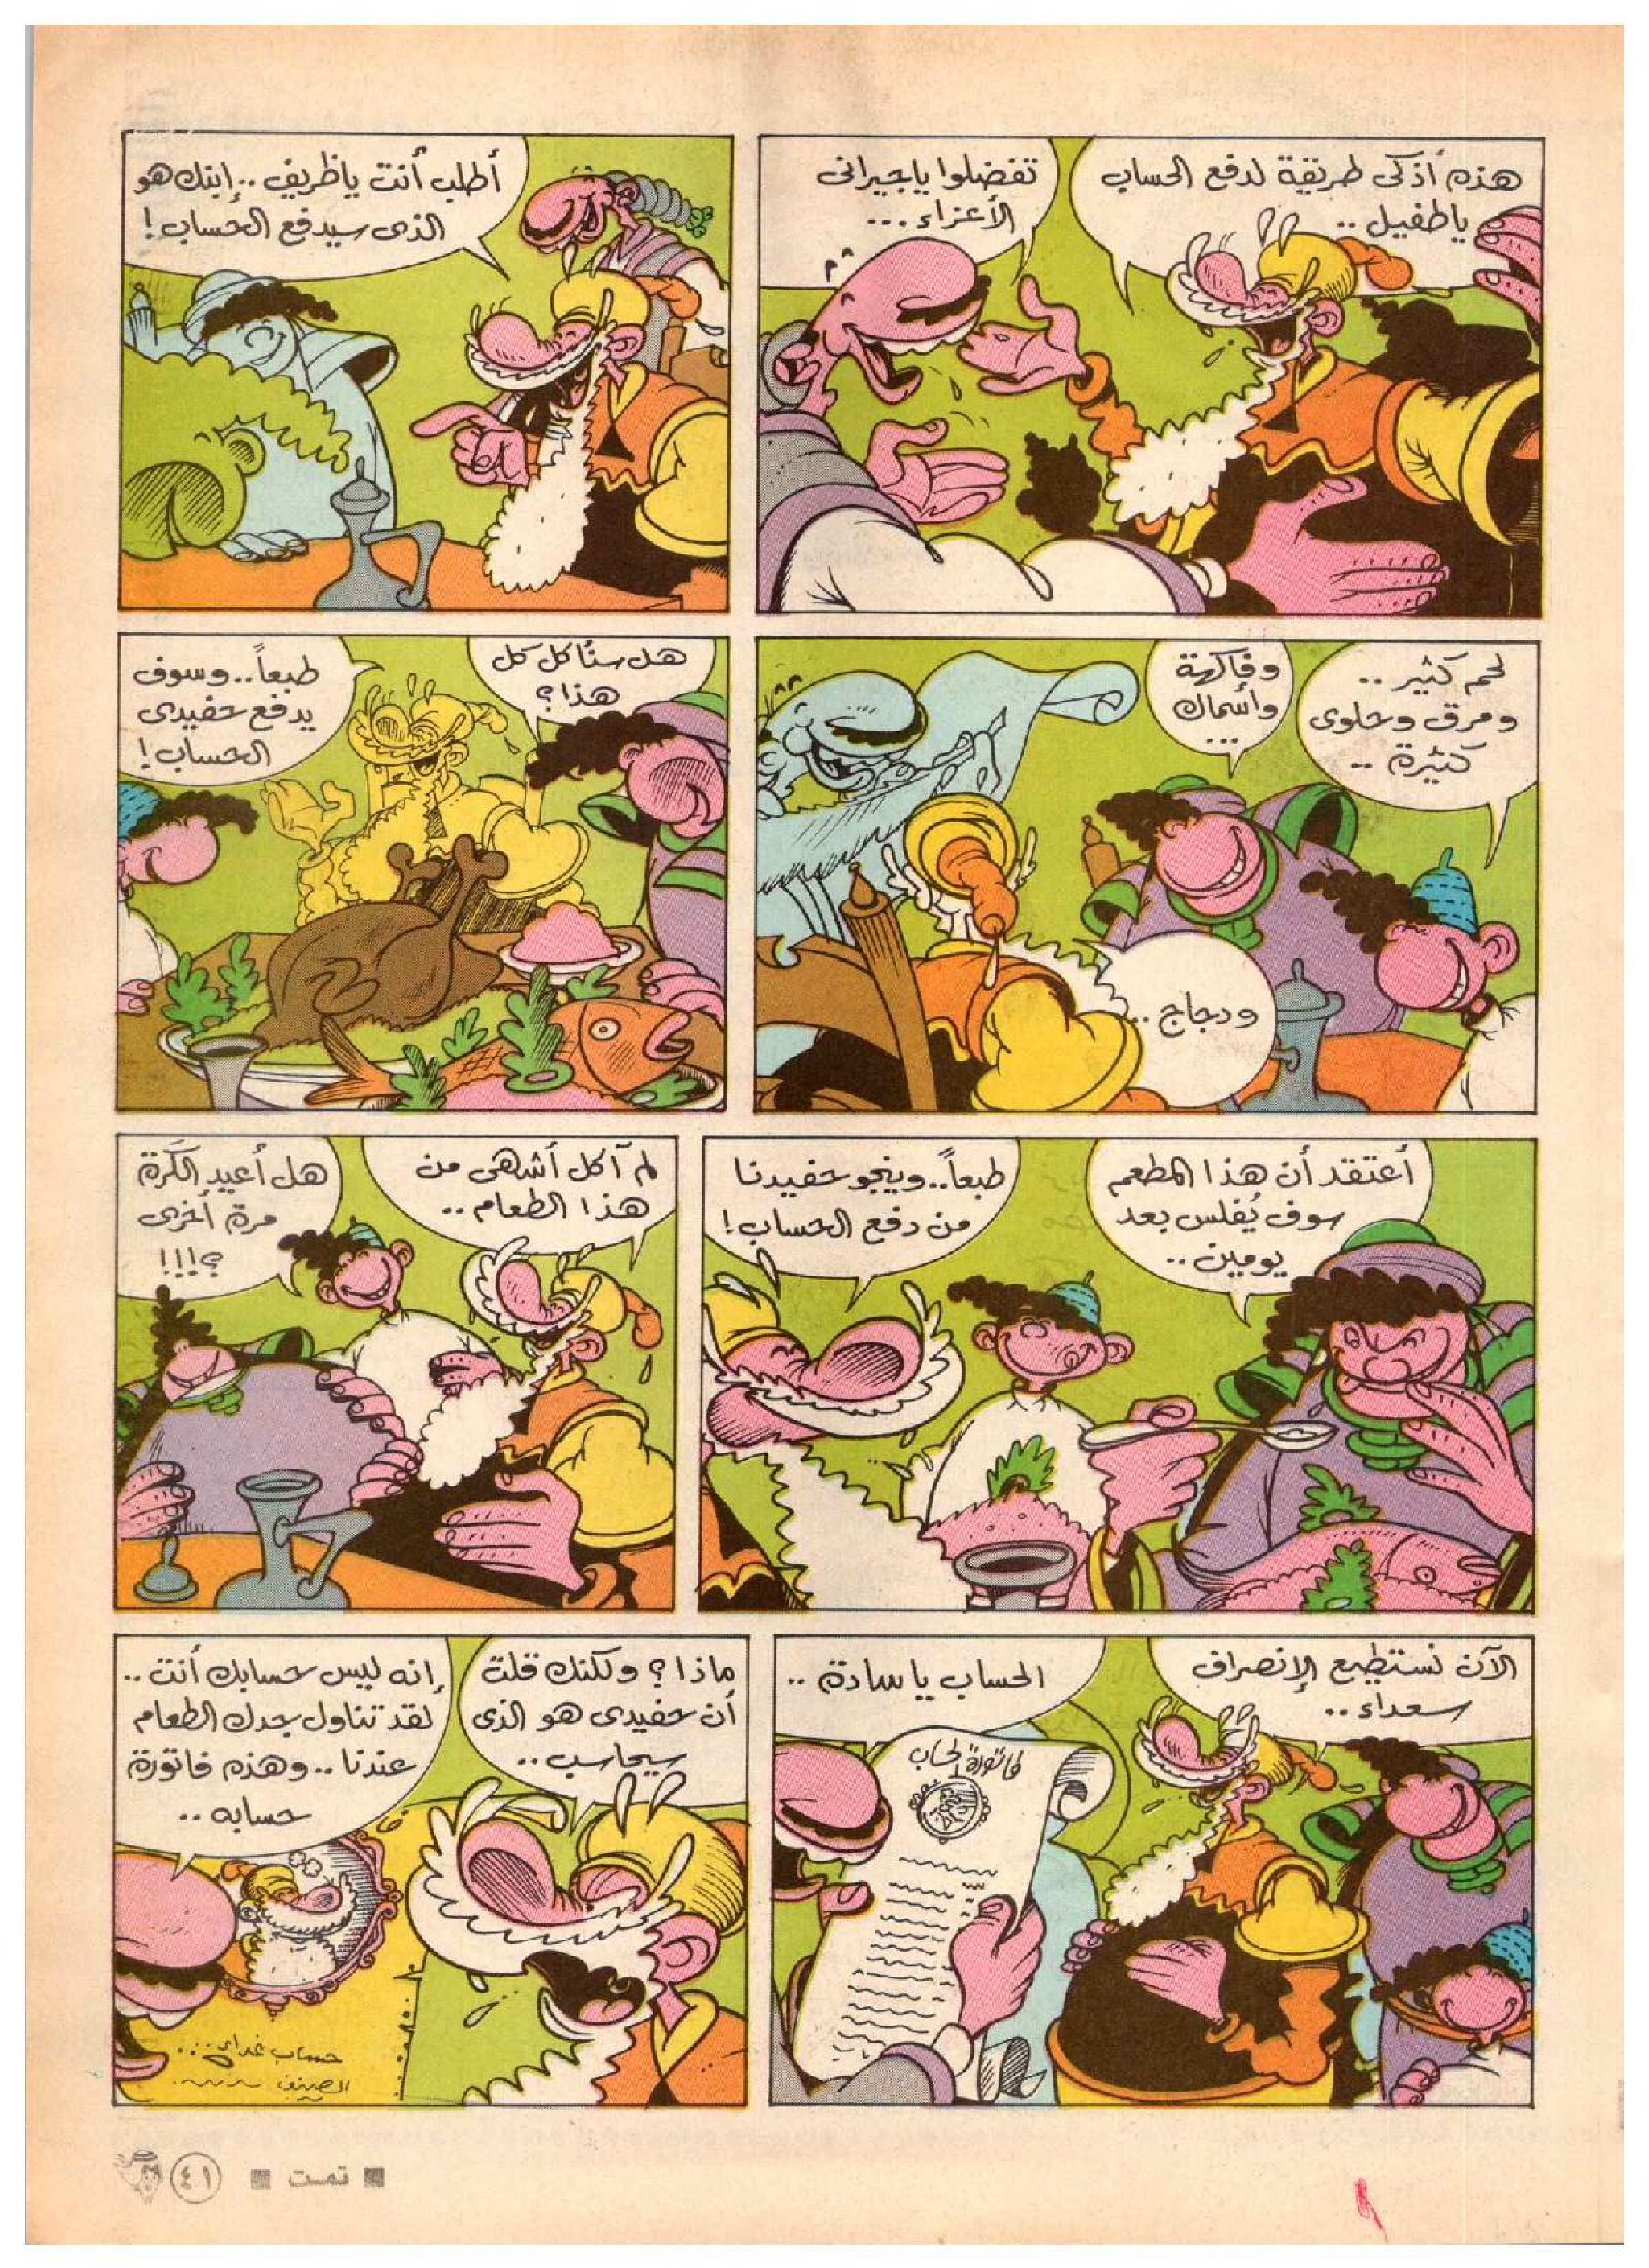 هذه أذكى طريقة لدفع الحساب
ياطفيل ..
تفضلوا ياجيرانى
الأعزاء ...
أطلب أنت ياظريف .. إبنك هو
الذى سيدفع الحساب !
لحم كثير ..
ومرق وحلوى
كثيرة ..
وفاكهة
وأسماك
...
ودجاج ..
هل سنأكل كل
هذا ؟
طبعاً .. وسوف
يدفع حفيدى
الحساب !
أعتقد أن هذا المطعم
سوف يُفلس بعد
يومين ..
طبعاً .. وينجو حفيدنا
من دفع الحساب !
لم آكل أشهى من
هذا الطعام ..
هل أعيد الكَرة
مرة أخرى
؟!!!
الآن نستطيع الإنصراف
سعداء ..
الحساب ياسادة ..
فاتورة الحساب
ماذا ؟ ولكنك قلت
أن حفيدى هو الذى
سيحاسب ..
إنه ليس حسابك أنت ..
لقد تناول جدك الطعام
عندنا .. وهذه فاتورة
حسابه ..
حساب غداء ...
الصنف
تمت
٤١